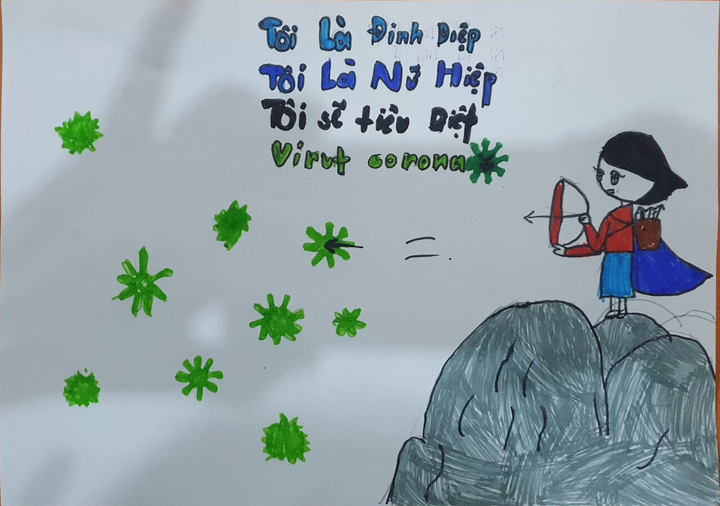 Tôi Là Đinh Diệp
Tôi Là Nữ Hiệp
Tôi sẽ tiêu Diệt
Virut corona